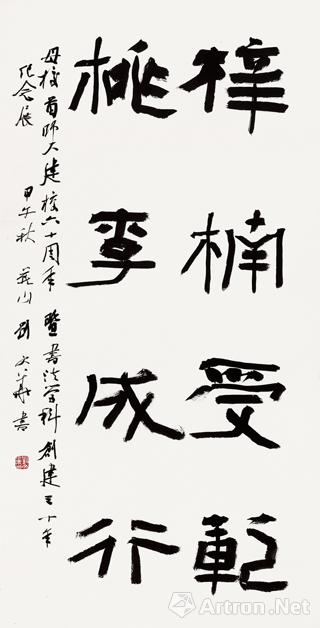 梓楠受範
桃李成行
母校首师大建校六十周年暨书法学科创建三十年
纪念展 甲午秋 燕山 刘文华书
Artron.Net